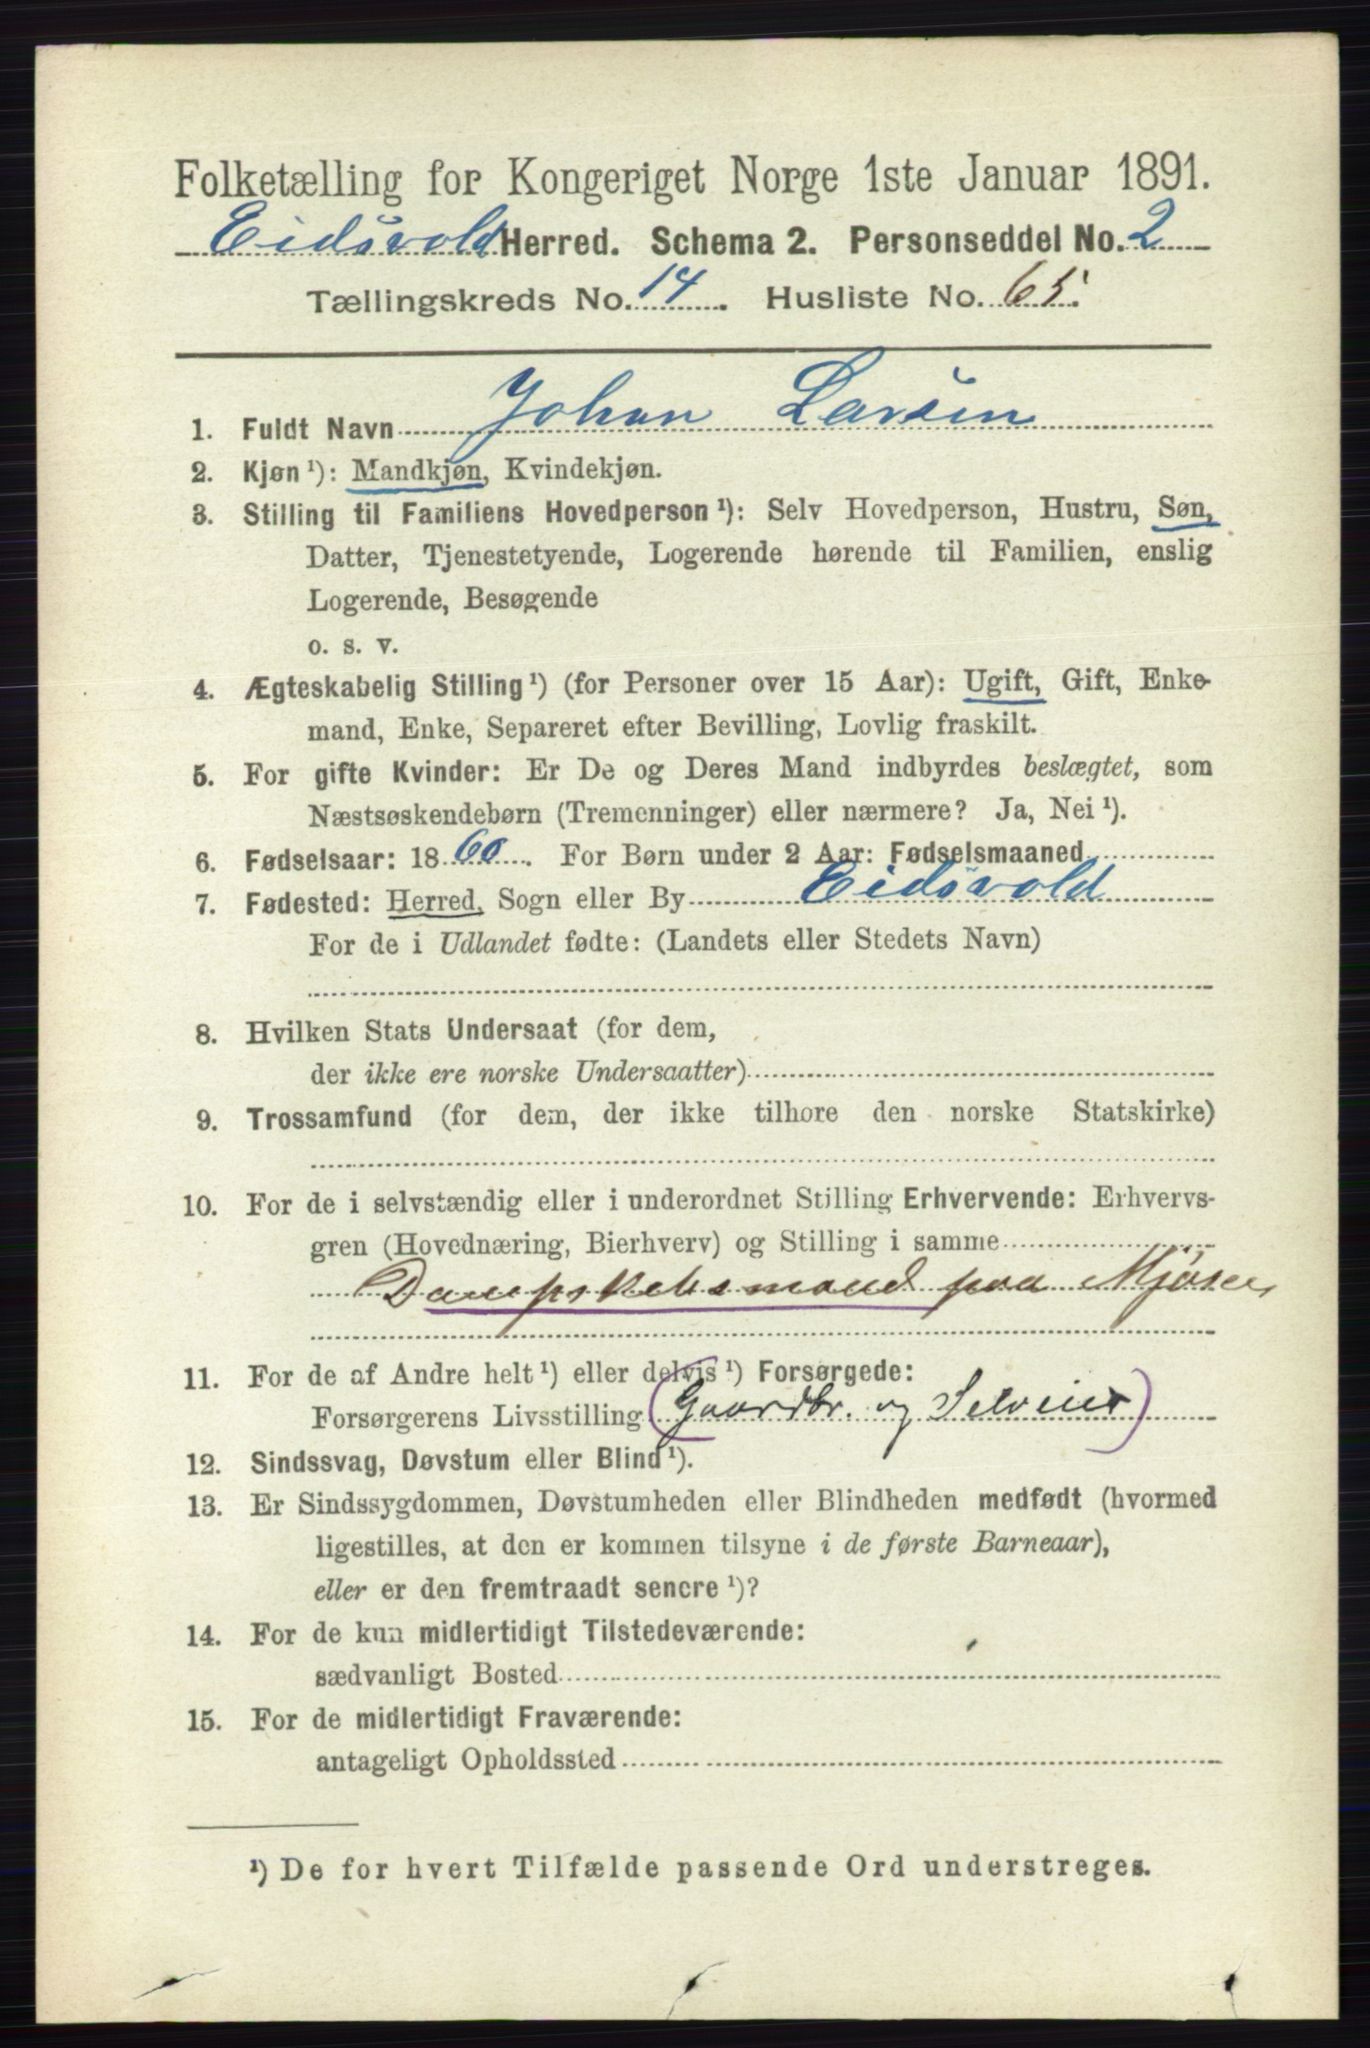 Folketælling for Kongeriget Norge 1ste Januar 1891.
Eidsvold Herred. Schema 2. Personseddel No. 2
Tællingskreds No. 14. Husliste No. 65.
1. Fuldt Navn Johan Larsen
2. Kjøn ¹): Mandkjøn, Kvindekjøn.
3. Stilling til Familiens Hovedperson ¹): Selv Hovedperson, Hustru, Søn,
Datter, Tjenestetyende, Logerende hørende til Familien, enslig
Logerende, Besøgende
o. s. v.
4. Ægteskabelig Stilling ¹) (for Personer over 15 Aar): Ugift, Gift, Enke-
mand, Enke, Separeret efter Bevilling, Lovlig fraskilt.
5. For gifte Kvinder: Er De og Deres Mand indbyrdes beslægtet, som
Næstsøskendebørn (Tremenninger) eller nærmere? Ja, Nei ¹).
6. Fødselsaar: 1860. For Børn under 2 Aar: Fødselsmaaned
7. Fødested: Herred, Sogn eller By Eidsvold
For de i Udlandet fødte: (Landets eller Stedets Navn)
8. Hvilken Stats Undersaat (for dem,
der ikke ere norske Undersaatter)
9. Trossamfund (for dem, der ikke tilhore den norske Statskirke)
10. For de i selvstændig eller i underordnet Stilling Erhvervende: Erhvervs-
gren (Hovednæring, Bierhverv) og Stilling i samme
Dampskibsmand paa Mjösen
11. For de af Andre helt ¹) eller delvis ¹) Forsørgede:
Forsørgerens Livsstilling (Gaardbr. og Selveier)
12. Sindssvag, Døvstum eller Blind ¹).
13. Er Sindssygdommen, Døvstumheden eller Blindheden medfødt (hvormed
ligestilles, at den er kommen tilsyne i de første Barneaar),
eller er den fremtraadt senere ¹)?
14. For de kun midlertidigt Tilstedeværende:
sædvanligt Bosted
15. For de midlertidigt Fraværende:
antageligt Opholdssted
¹) De for hvert Tilfælde passende Ord understreges.